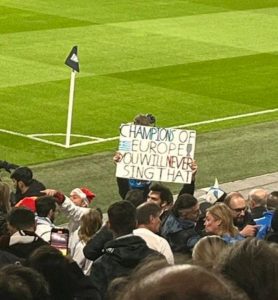 CHAMPIONS OF
EUROPE
YOU WILL NEVER
SING THAT